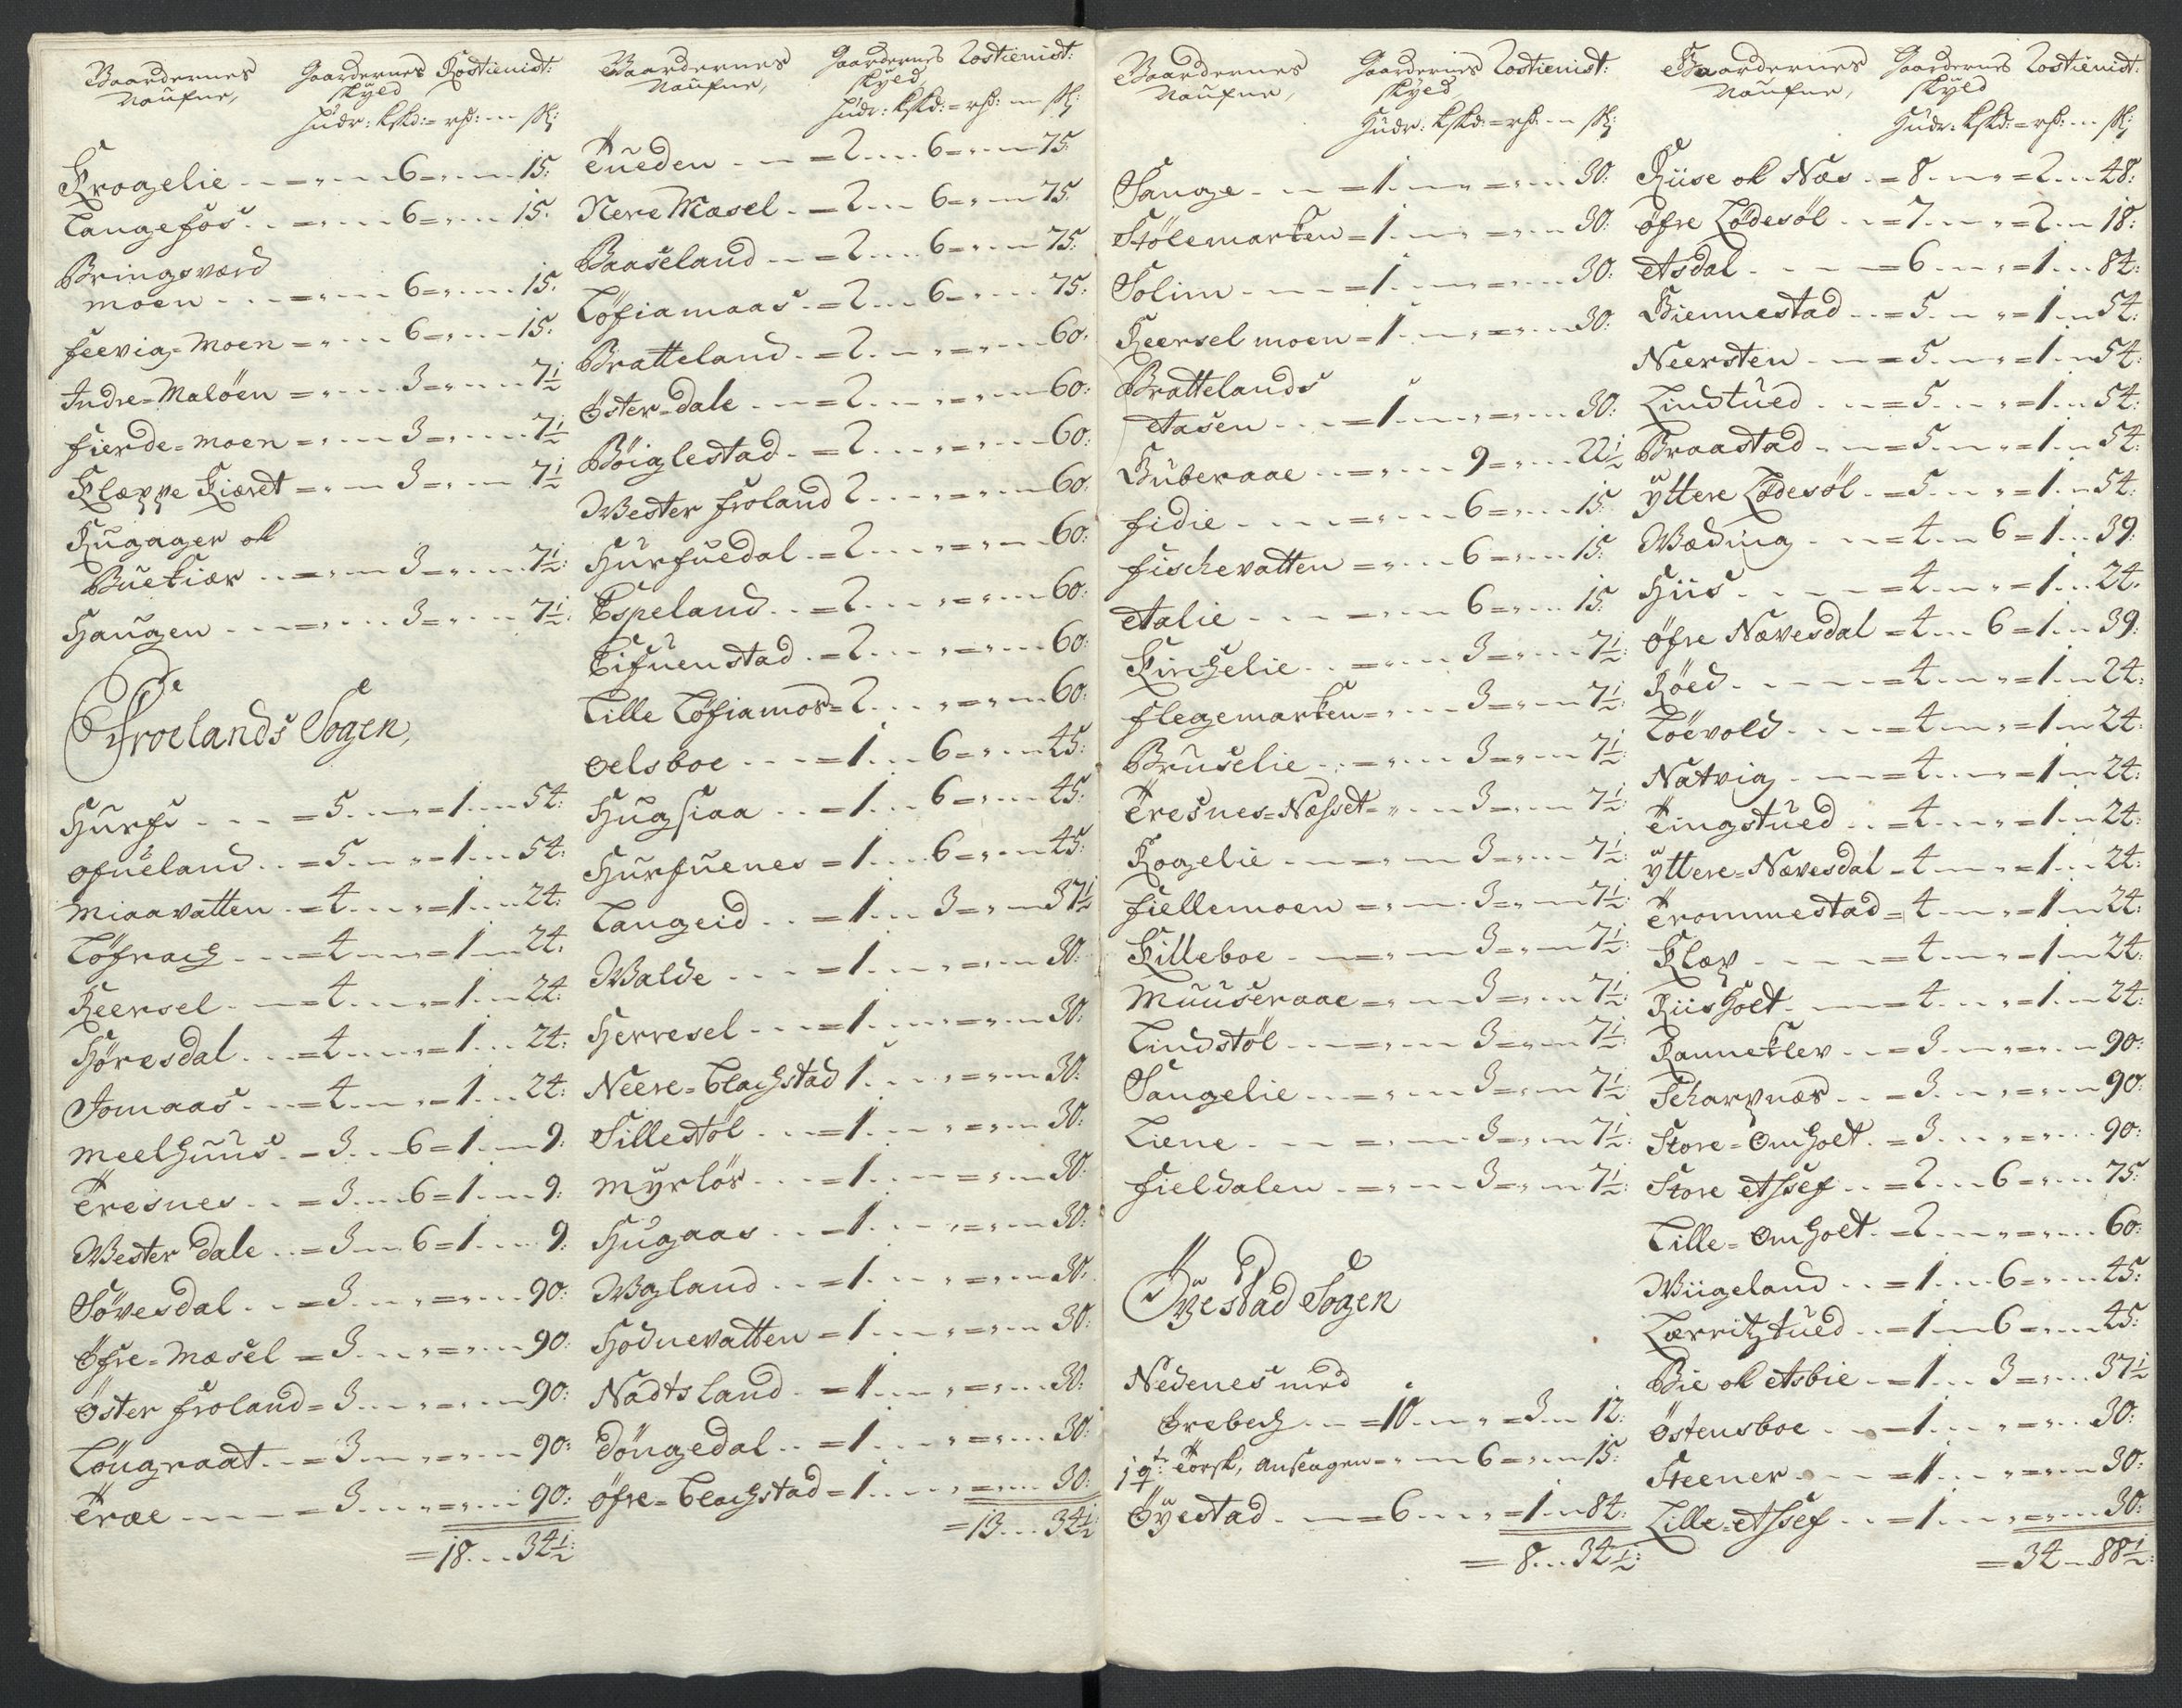 Gaardernes Gaardernes Rostienist:
Naufne, skyld
Hudr: kskd: = rd: - sk:
Krogelie - - - = „ - - 6 = „ - - 15:
Langefos - - = „ - - 6 = „ - - 15:
Bringsværd
moen - - - = „ - - 6 = „ - - 15:
Feevig-Moen = „ - - 6 = „ - - 15:
Indre-Maløen = „ - - 3 = „ - - 7½
Fierde-moen = „ - - 3 = „ - - 7½
Klæppe Kiæret = „ - - 3 = „ - - 7½
Rugager ok
Buekiær - - = „ - - 3 = „ - - 7½:
Haugen - - - = „ - - 3 = „ - - 7½:
Froelands Sogen,
Hurfe - - - = 5 - - „ = 1 - - 54:
Ofueland - - = 5 - - „ = 1 - - 54:
Miaavatten - = 4 - - „ = 1 - - 24:
Løfrach - - = 4 - - „ = 1 - - 24:
Reersel - - = 4 - - „ = 1 - - 24:
Høresdal - - = 4 - - „ = 1 - - 24:
Jomaas - - = 4 - - „ = 1 - - 24:
Meelhuus - = 3 - - 6 = 1 - - 9:
Tresnes - - = 3 - - 6 = 1 - - 9:
Wester dale - - = 3 - - 6 = 1 - - 9:
Søvesdal - - = 3 - - „ = „ - - 90:
Øfre-Mæsel = 3 - - „ = „ - - 90:
Øster Froland = 3 - - „ = „ - - 90:
Løugraat - - = 3 - - „ = „ - - 90:
Træe - - - = 3 - - „ = „ - - 90:
= 18 - - 34½:
Gaardernes Gaardernes Rostienist:
Naufne, skyld
Hudr: kskd: = rd: - sk:
Tueden - - = 2 - - 6 = „ - - 75:
Nere Mæsel - = 2 - - 6 = „ - - 75:
Baaseland - - = 2 - - 6 = „ - - 75:
Løfiamaas - = 2 - - 6 = „ - - 75:
Bratteland - = 2 - - „ = „ - - 60:
Øster-dale - - = 2 - - „ = „ - - 60:
Bøiglestad - = 2 - - „ = „ - - 60:
Wester Froland 2 - - „ = „ - - 60:
Hurfuedal - = 2 - - „ = „ - - 60:
Espeland - - = 2 - - „ = „ - - 60:
Lifuenstad - = 2 - - „ = „ - - 60:
Lille Løfiamos = 2 - - „ = „ - - 60:
Oelsboe - - - = 1 - - 6 = „ - - 45:
Hugsiaa - - = 1 - - 6 = „ - - 45:
Hurfuenes = 1 - - 6 = „ - - 45:
Langeid - - = 1 - - 3 = „ - - 37½
Walde - - - = 1 - - „ = „ - - 30:
Herresel - - - = 1 - - „ = „ - - 30:
Neere-Clachstad 1 - - „ = „ - - 30:
Sillestøl - - = 1 - - „ = „ - - 30:
Myrløs - - - = 1 - - „ = „ - - 30:
Hugaas - - = 1 - - „ = „ - - 30:
Wgland - - = 1 - - „ = „ - - 30:
Hodnevatten = 1 - - „ = „ - - 30:
Nadtsland - = 1 - - „ = „ - - 30:
Døngedal - - = 1 - - „ = „ - - 30:
Øfre-Clachstad = 1 - - „ = „ - - 30:
= 13 - - 34½:
Gaardernes Gaardernes Rostienist:
Naufne, skyld
Hudr: kskd: = rd: - sk:
Sange - - = 1 - - „ = „ - - 30:
Stølemarken = 1 - - „ = „ - - 30:
Solim - - - = 1 - - „ = „ - - 30:
Reersel moen = 1 - - „ = „ - - 30:
Brattelands
Aasen - - - = 1 - - „ = „ - - 30:
Buberaae - - = „ - - 9 = „ - - 22½
Fidie - - - = „ - - 6 = „ - - 15:
Fischevatten = „ - - 6 = „ - - 15:
Aalie - - - = „ - - 6 = „ - - 15:
Kirchelie - - = „ - - 3 = „ - - 7½:
Flegemarken = „ - - 3 = „ - - 7½:
Bruselie - - = „ - - 3 = „ - - 7½:
Tresnes-Næsset = „ - - 3 = „ - - 7½:
Rogelie - - = „ - - 3 = „ - - 7½:
Fiellemoen = „ - - 3 = „ - - 7½:
Killeboe - - = „ - - 3 = „ - - 7½:
Muuseraae = „ - - 3 = „ - - 7½:
Lindstøl - - = „ - - 3 = „ - - 7½:
Sangelie - - = „ - - 3 = „ - - 7½:
Liene - - - = „ - - 3 = „ - - 7½:
Fieldalen - - = „ - - 3 = „ - - 7½:
Øyestad Sogen
Nedenes med
Ørebech - - = 10 - - „ = 3 - - 12:
1 qtr Torsk, Anseagen = „ - - 6 = „ - - 15:
Øyestad - - = 6 - - „ = 1 - - 84:
= 8 - - 34½:
Gaardernes Gaardernes Rostienist:
Naufne, skyld
Hudr: kskd: = rd: - sk:
Riise ok Næs - = 8 - - „ = 2 - - 48:
Øfre Lødesøl - - = 7 - - „ = 2 - - 18:
Asdal - - - = 6 - - „ = 1 - - 84:
Biennestad - - = 5 - - „ = 1 - - 54:
Neersten - - = 5 - - „ = 1 - - 54:
Lindtued - - = 5 - - „ = 1 - - 54:
Braastad - - = 5 - - „ = 1 - - 54:
Yttere Lødesøl - = 5 - - „ = 1 - - 54:
Wæding - - = 4 - - 6 = 1 - - 39:
Hiis - - - = 4 - - „ = 1 - - 24:
Øfre Nævesdal = 4 - - 6 = 1 - - 39:
Røed - - - = 4 - - „ = 1 - - 24:
Løevold - - = 4 - - „ = 1 - - 24:
Natvig - - = 4 - - „ = 1 - - 24:
Tingstued - - = 4 - - „ = 1 - - 24:
Yttere-Nævesdal = 4 - - „ = 1 - - 24:
Trommestad = 4 - - „ = 1 - - 24:
Klæp - - - = 4 - - „ = 1 - - 24:
Riisholt - - = 4 - - „ = 1 - - 24:
Ranneklev - - = 3 - - „ = „ - - 90:
Scharpnæs - - = 3 - - „ = „ - - 90:
Store-Omholt - = 3 - - „ = „ - - 90:
Store Assef - - = 2 - - 6 = „ - - 75:
Lille-Omholt - = 2 - - „ = „ - - 60:
Wiigeland - - = 1 - - 6 = „ - - 45:
Lærritztued - - = 1 - - 6 = „ - - 45:
Bie ok Asbie - = 1 - - 3 = „ - - 37½
Østensboe - - = 1 - - „ = „ - - 30:
Steener - - = 1 - - „ = „ - - 30:
Lille-Assef - - = 1 - - „ = „ - - 30:
= 34 - 88½: